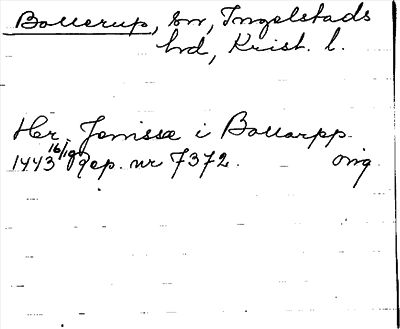 Bollerup, sn, Ingelstads
hd, Krist. l.
Her Jenisse i Bollarpp
1443 16/10 Rep. nr 7372. orig